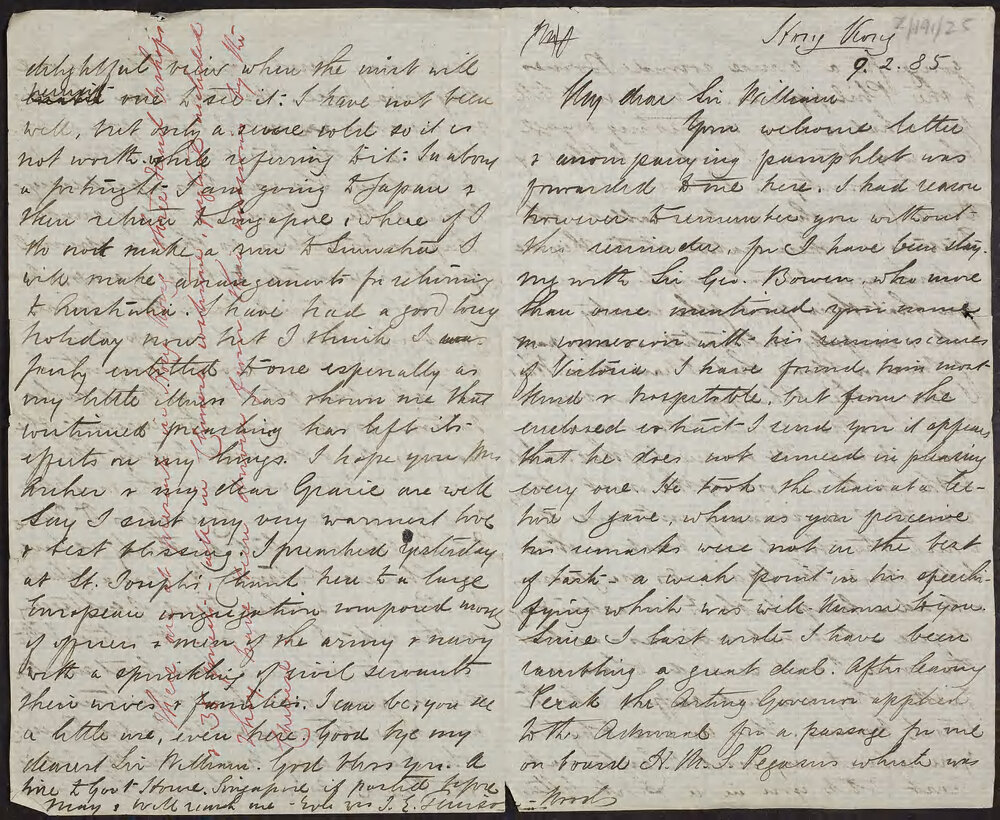 delightful view when the mist will
permit one to see it. I have not been
well, but only a severe cold so it is
not worth while referring to it. In about
a fortnight I am going to Japan &
then return to Singapore, where if I
do not make a run to Sumatra I
will make arrangements for returning
to Australia. I have had a good long
holiday now but I think I was
fairly entitled to one especially as
my little illness has shown me that
continued preaching has left its
effects on my lungs. I hope you Mrs
Archer & my dear Gracie are well
Say I sent my very warmest love
& best blessing. I preached yesterday
at St. Joseph's Church here to a large
European congregation composed mostly
of officers & men of the army & navy
with a sprinkling of civil servants
their wives & families. I can be, you see
a little use, even here. Good bye my
dearest Sir William. God bless you. A
line to Govt House. Singapore if posted before
May 1 will reach me - Ever yrs J. E. Tenison-Woods
There are at present in Hong Kong three
& 3 German
They have been driven from by the
Chinese
7/191/25
Hong Kong
9. 2. 85
My dear Sir William
Your welcome letter
& accompanying pamphlet was
forwarded to me here. I had reason
however to remember you without
the reminder, for I have been stay-
ing with Sir Geo. Bowen, who more
than once mentioned your name
in connexion with his reminiscences
of Victoria. I have found him most
kind & hospitable, but from the
enclosed extract I send you it appears
that he does not succeed in pleasing
every one. He took the chair at a lec-
ture I gave, when as you perceive
his remarks were not in the best
of taste - a weak point in his speechi-
fying which was well known to you.
Since I last wrote I have been
rambling a great deal. After leaving
Perak the Acting Governor applied
to the Admiral for a passage for me
on board H. M. S. Pegasus which was